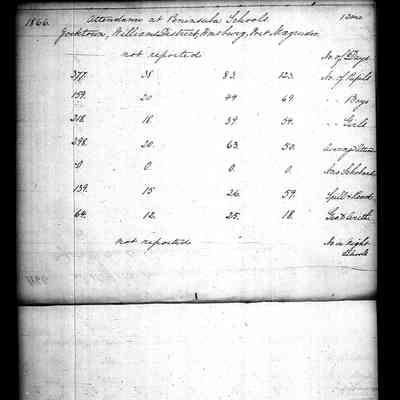 1866. Attendance at Peninsula Schools. June
Yorktown, Williams District, Wmsburg, Fort Magruder.
not reported No. of Days
277. 38 83. 123. No. of Pupils
159. 20 44 69. " Boys
218. 18. 39 54. " Girls
298. 20. 63. 50. Average Atten
0 0. 0. 0. Abc Scholars
139. 15 26. 59. Spell & Read
64. 12. 25. 18. Geo & Arith
not reported No in night
Schools